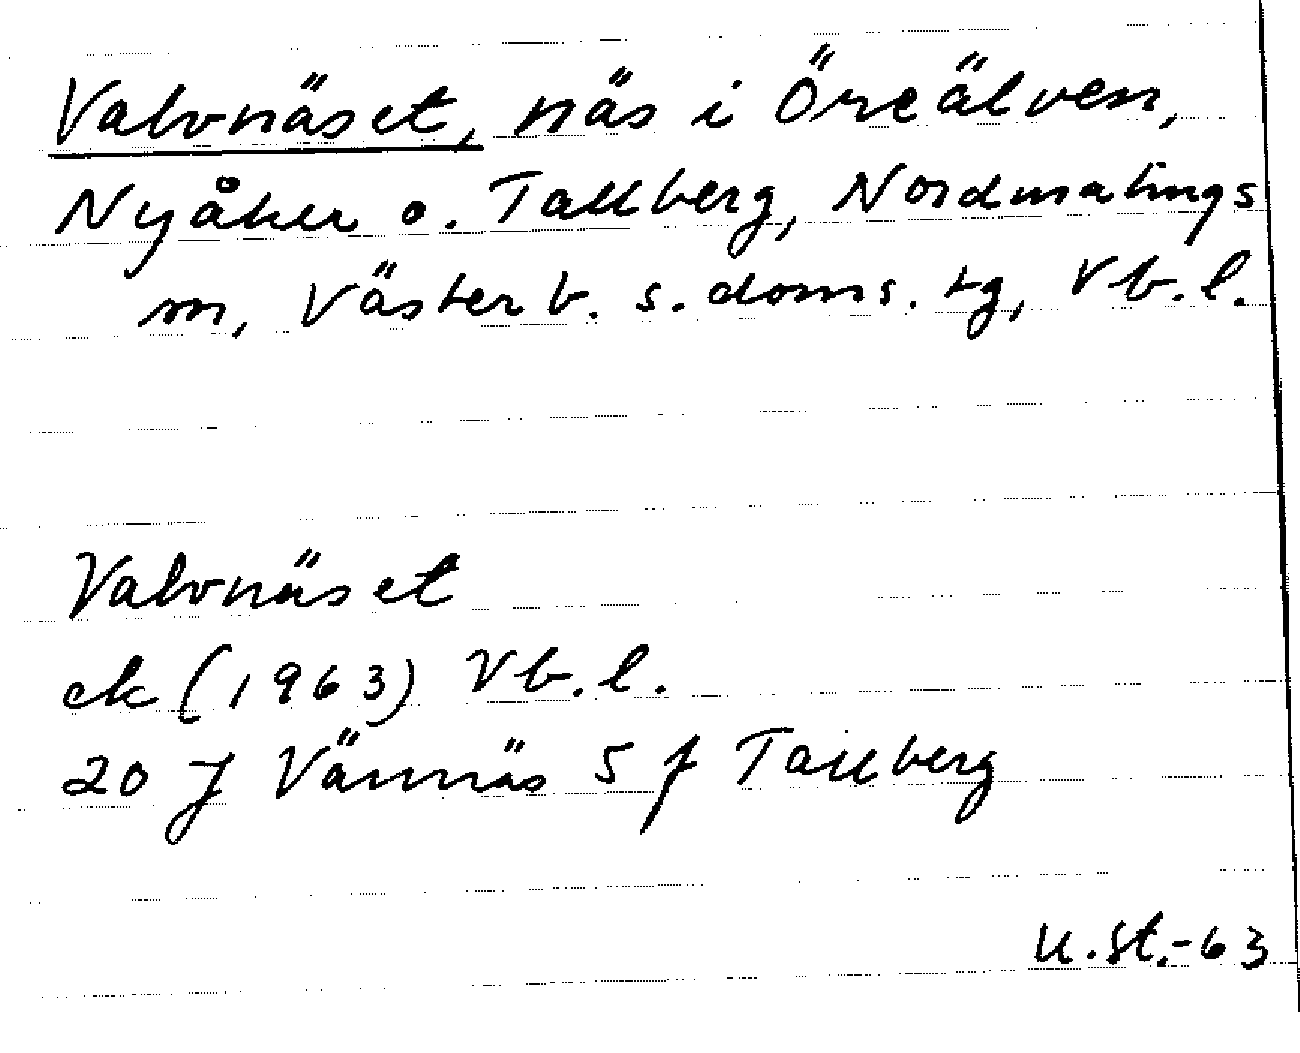 Valvnäset, näs i Öreälven,
Nyåker o. Tallberg, Nordmalings
m, Västerb. s. doms. tg, Vb. l.
Valvnäset
ek (1963) Vb. l.
20 J Vännäs 5 f Tallberg
U. St. -63